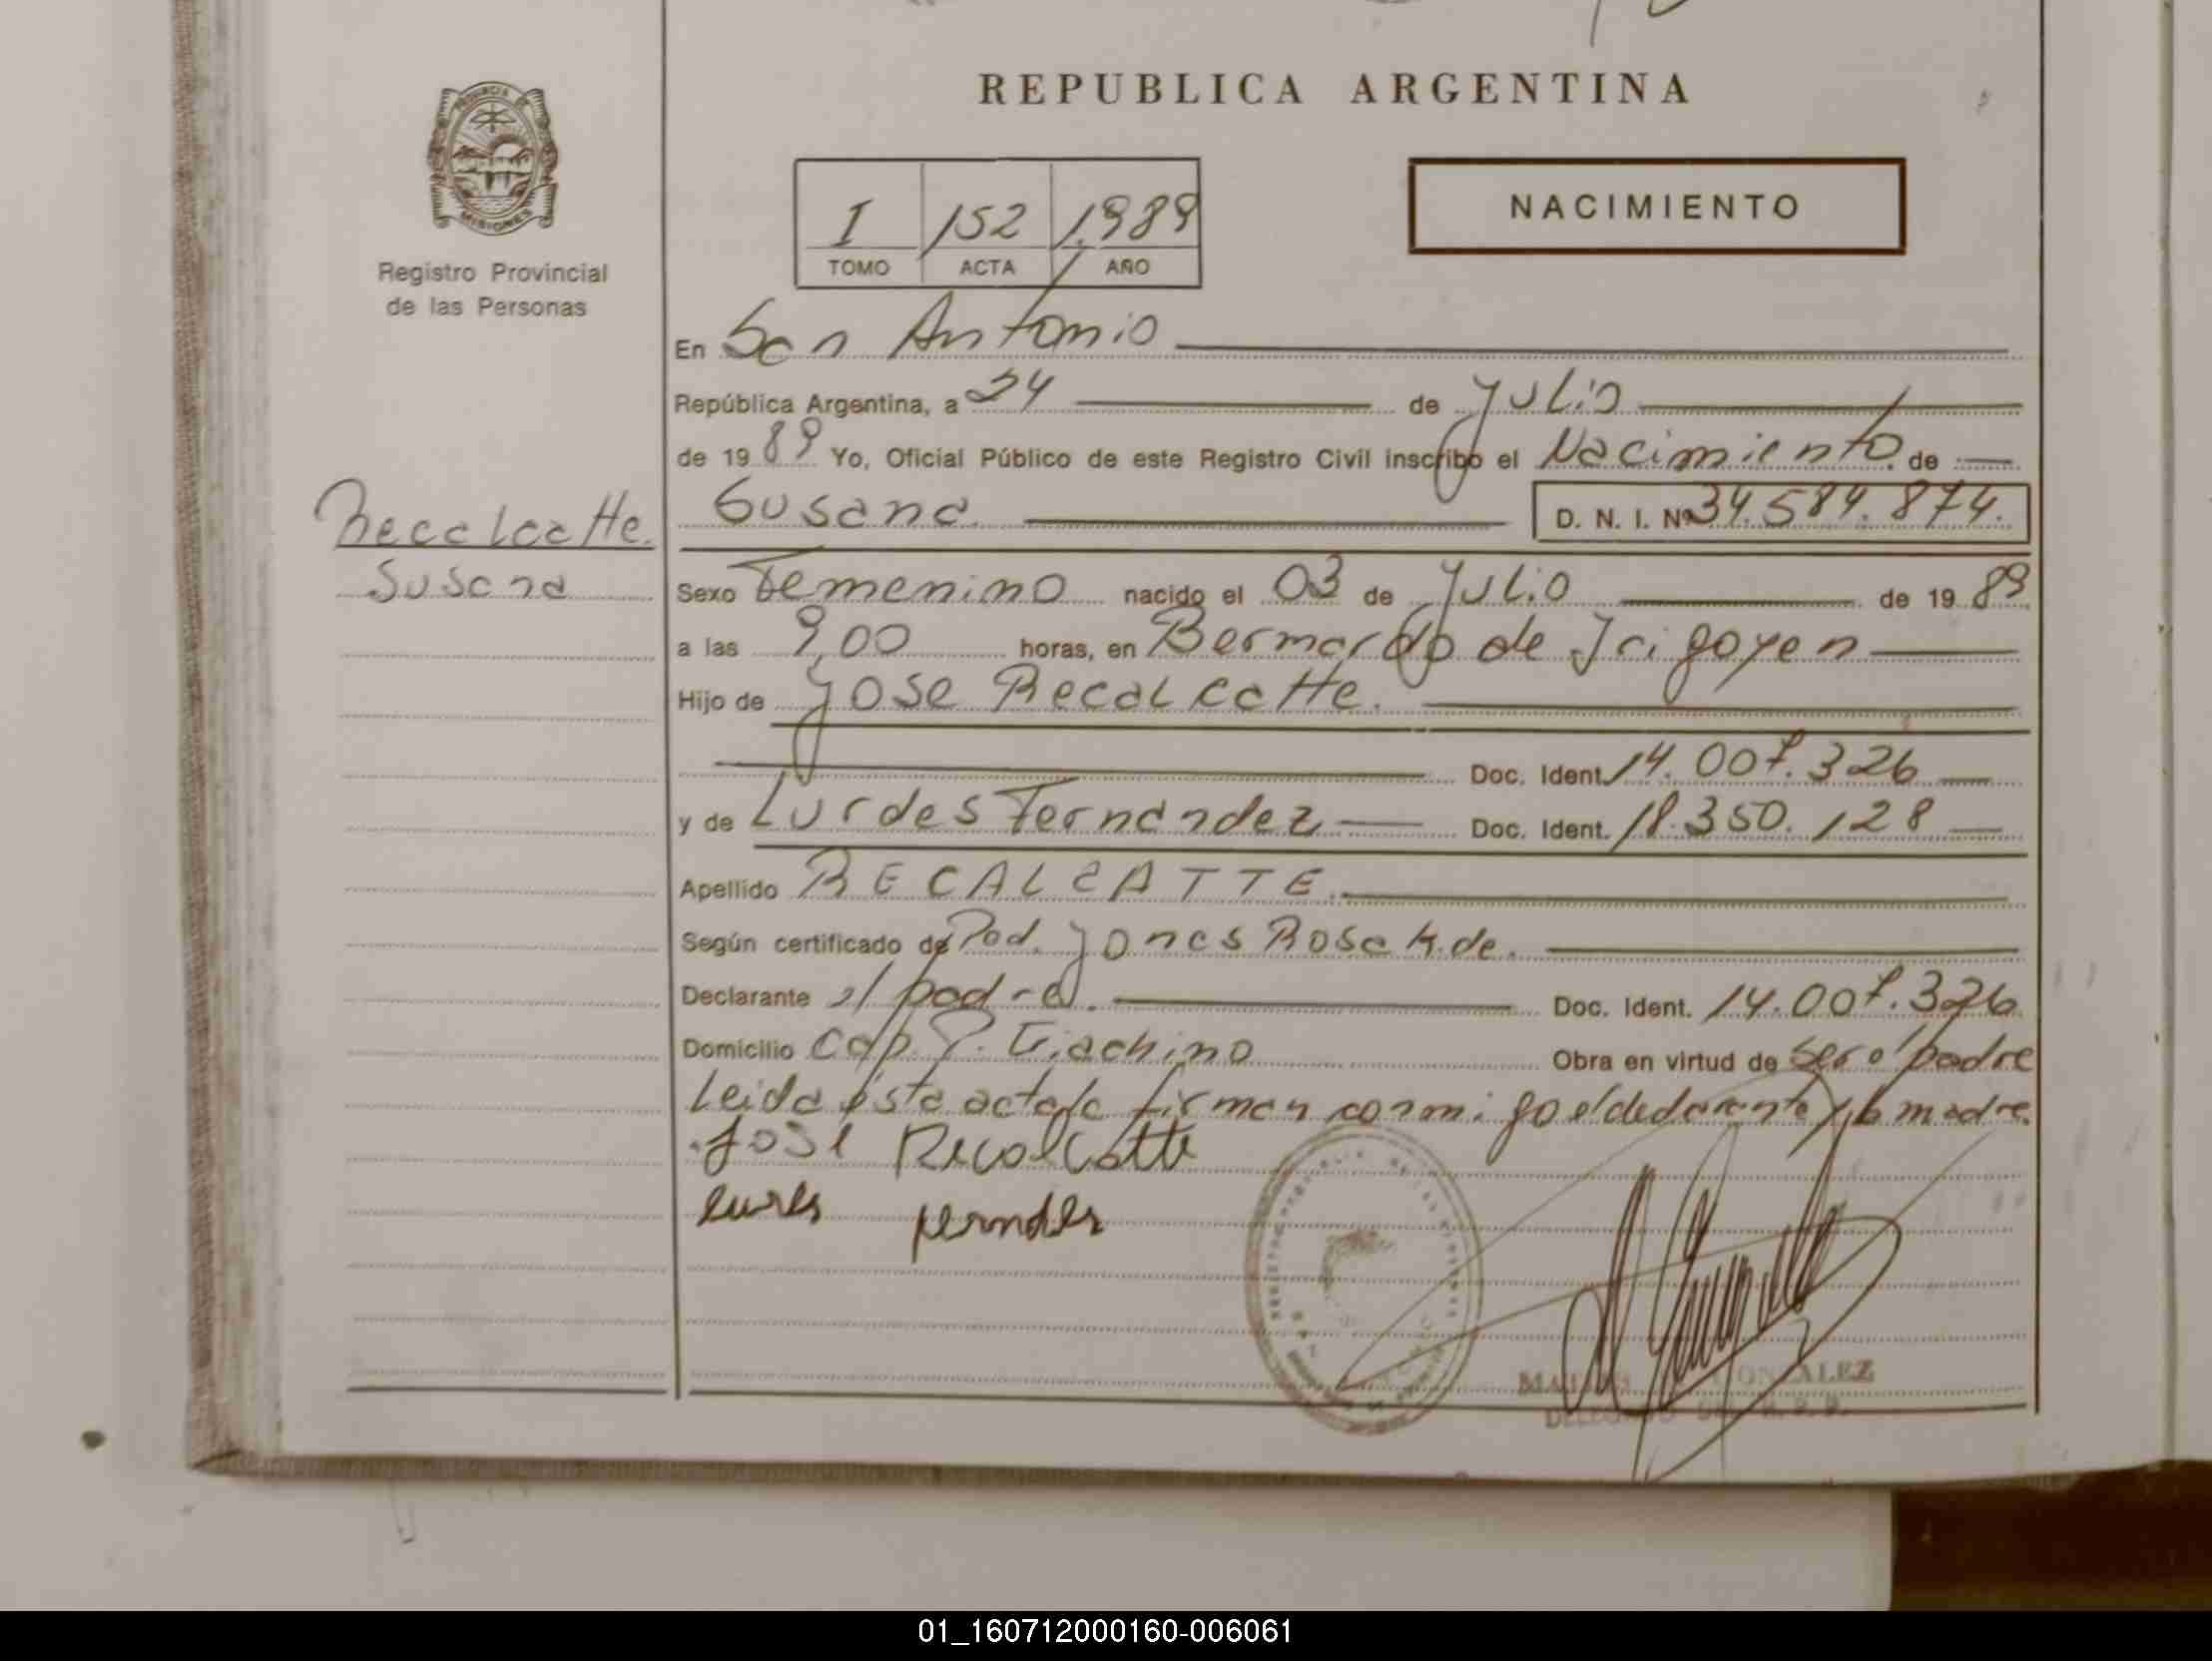 REPUBLICA ARGENTINA
PROVINCIA DE
MISIONES
Registro Provincial
de las Personas
I 152 1.989
TOMO ACTA AÑO
NACIMIENTO
En San Antonio
República Argentina, a 24 de Julio
de 1989 Yo, Oficial Público de este Registro Civil inscribo el Nacimiento de
Recalcatte.
Susana
Susana. D. N. I. Nº 34.584.874.
Sexo Femenino nacido el 03 de Julio de 1989
a las 9,00 horas, en Bernardo de Irigoyen
Hijo de Jose Recalcatte.
Doc. Ident. 14.007.326
y de Lurdes Fernandez Doc. Ident. 18.350.128
Apellido RECALCATTE.
Según certificado de Jones Rosa
Declarante el padre. Doc. Ident. 14.007.326
Domicilio Cap. P. Giachino Obra en virtud de ser el padre
Leida esta acta la firman conmigo el declarante y la madre.
José Recalcatte
lurles
GONZALEZ
01_160712000160-006061